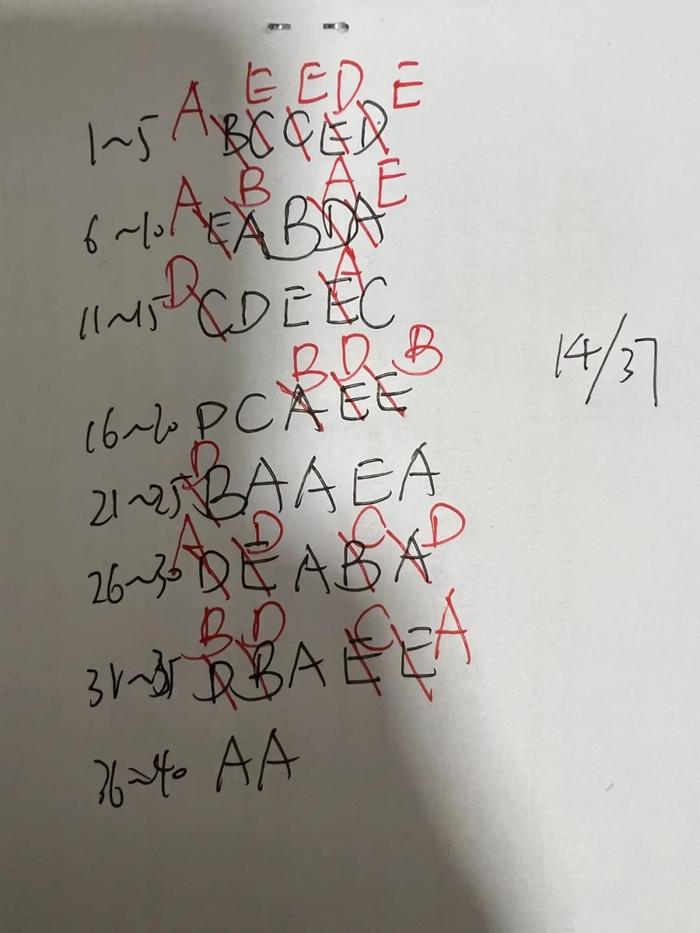 A E E D E
1~5 BCCED
A B A E
6~10 EABDA
D A
11~15 CDEEC
B D B
16~20 DCAEE
14/37
D
21~25 BAAEA
A D C D
26~30 DEABA
B D C A
31~35 DBAEE
36~40 AA